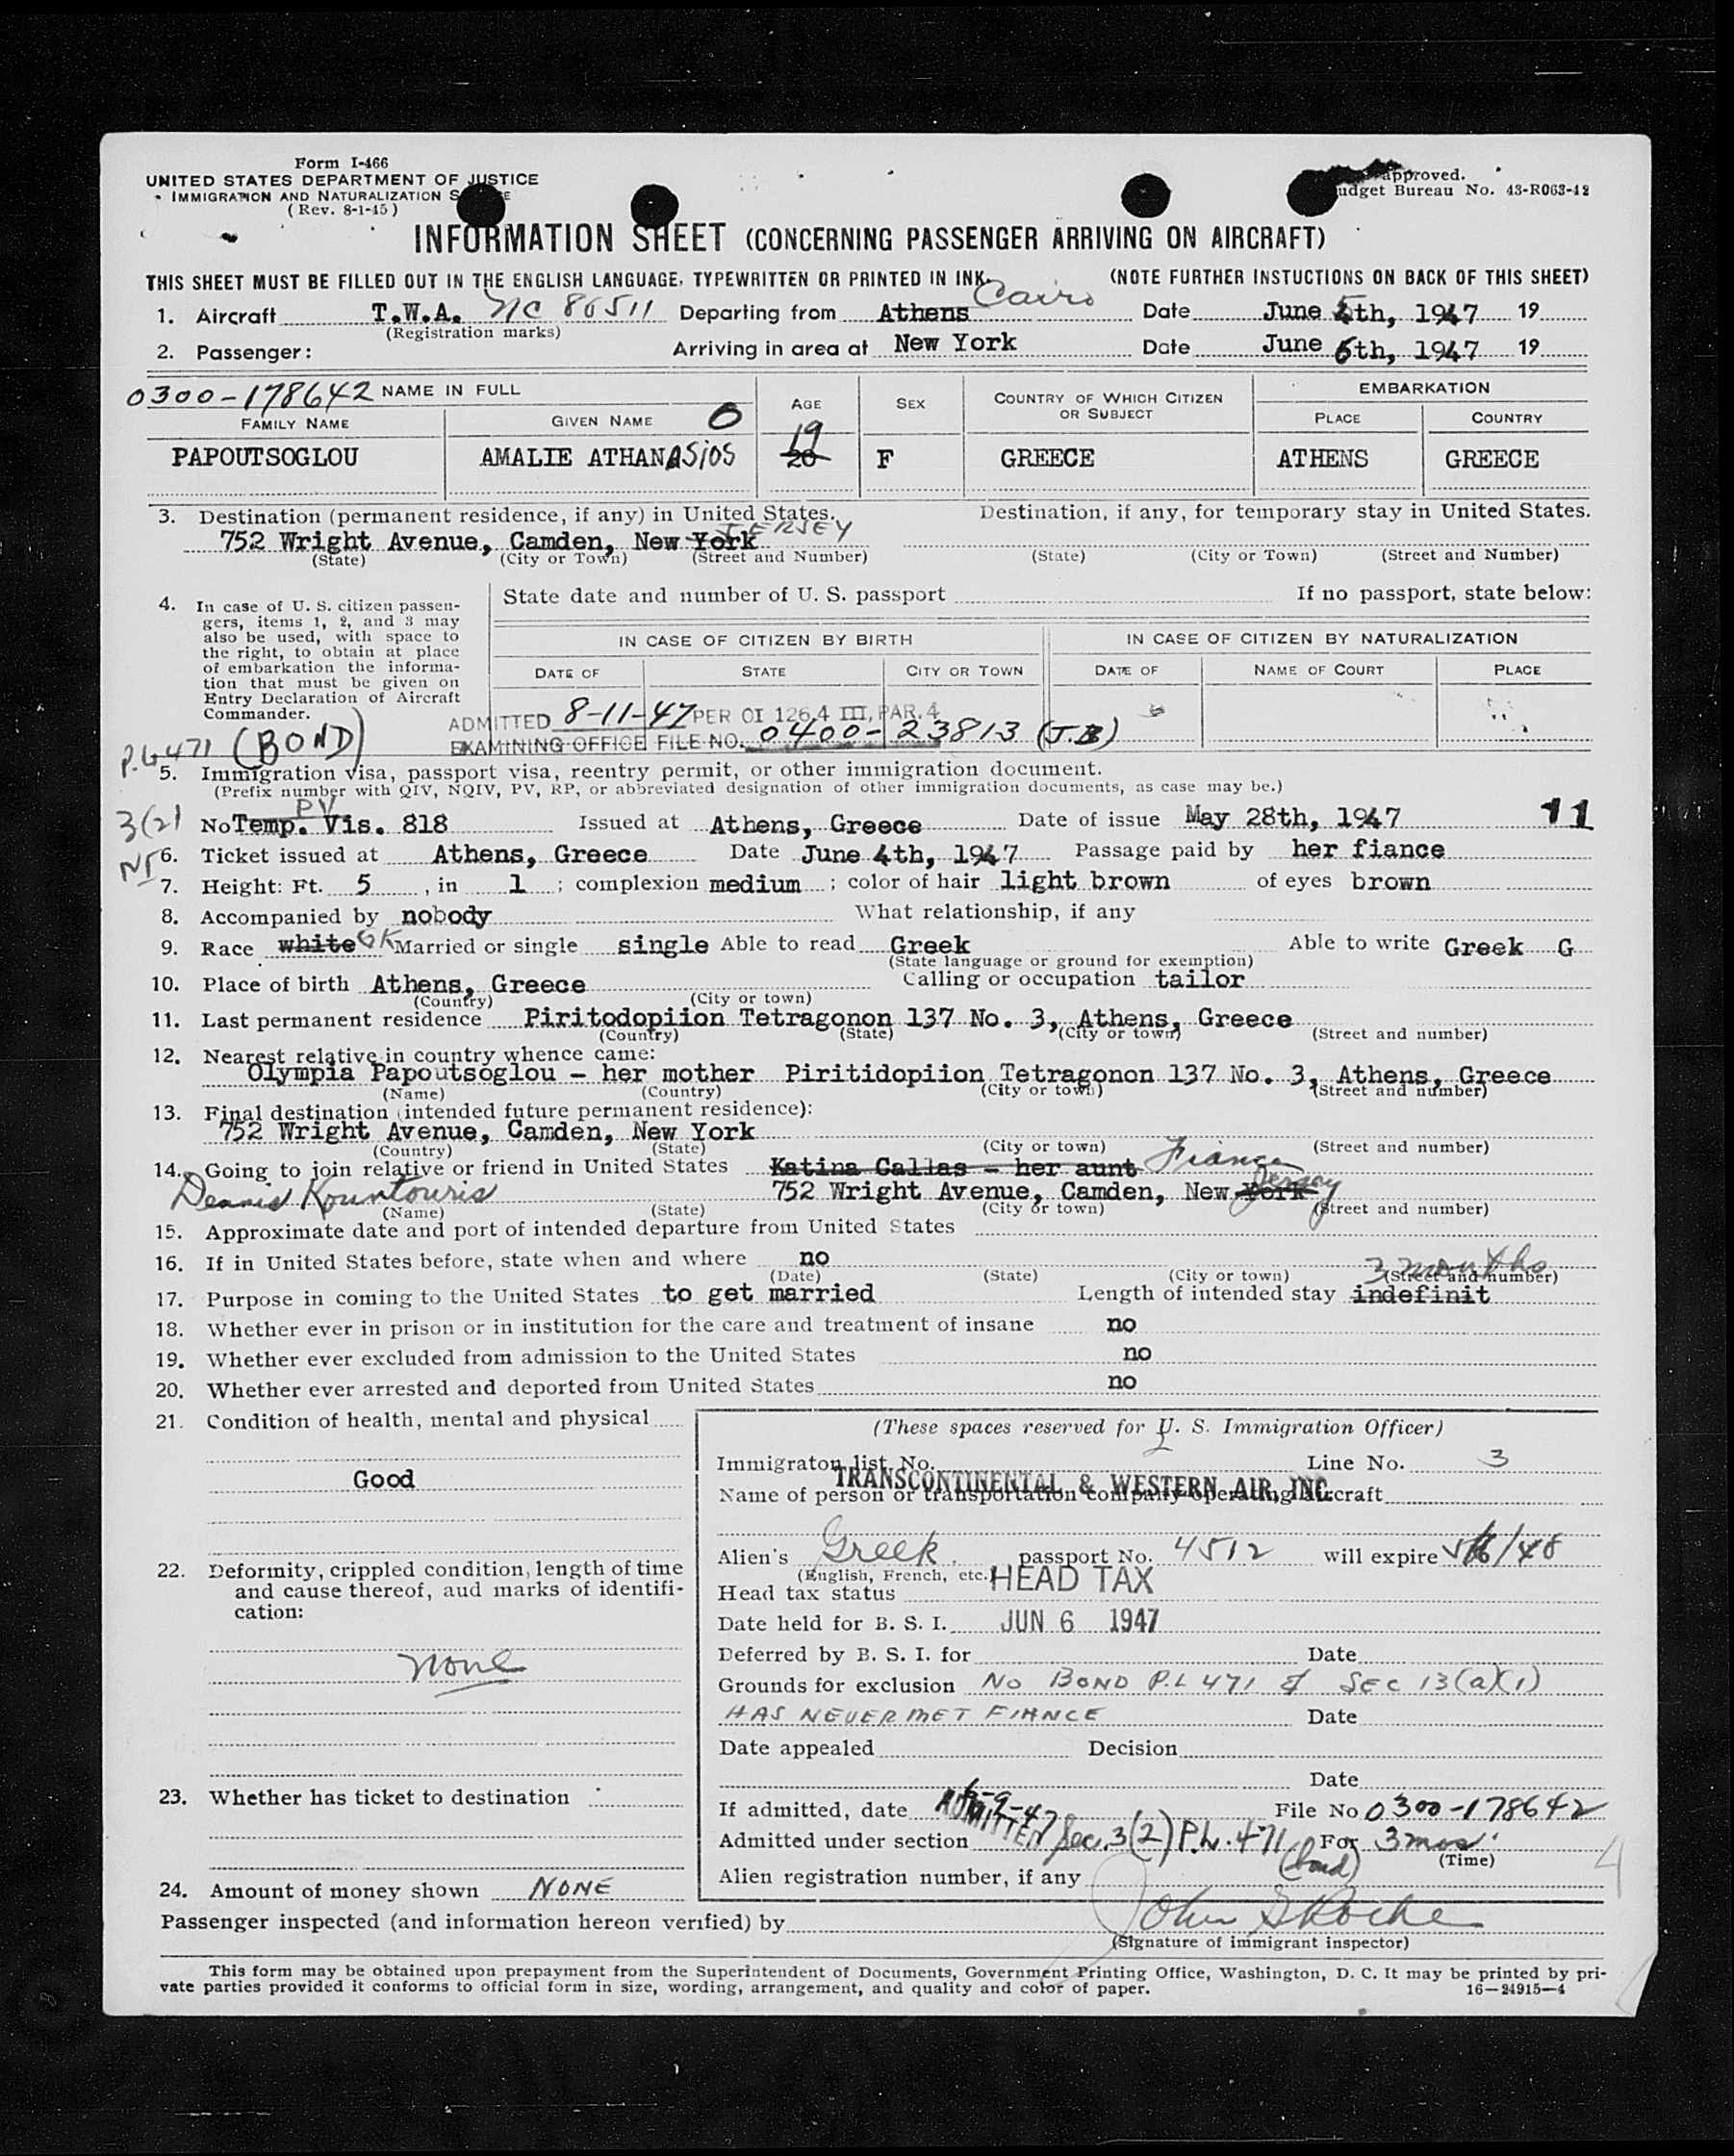 Form I-466
UNITED STATES DEPARTMENT OF JUSTICE
IMMIGRATION AND NATURALIZATION
(Rev. 8-1-45)
approved.
Budget Bureau No. 43-R063-42
INFORMATION SHEET (CONCERNING PASSENGER ARRIVING ON AIRCRAFT)
THIS SHEET MUST BE FILLED OUT IN THE ENGLISH LANGUAGE, TYPEWRITTEN OR PRINTED IN INK. (NOTE FURTHER INSTUCTIONS ON BACK OF THIS SHEET)
1. Aircraft T.W.A. NC 86511 Departing from Athens Cairo Date June 5th, 1947 19
(Registration marks)
2. Passenger: Arriving in area at New York Date June 6th, 1947 19
0300-178642 NAME IN FULL AGE SEX COUNTRY OF WHICH CITIZEN OR SUBJECT EMBARKATION
FAMILY NAME GIVEN NAME O PLACE COUNTRY
19
PAPOUTSOGLOU AMALIE ATHANASIOS 20 F GREECE ATHENS GREECE
3. Destination (permanent residence, if any) in United States. Destination, if any, for temporary stay in United States.
JERSEY
752 Wright Avenue, Camden, New York
(State) (City or Town) (Street and Number) (State) (City or Town) (Street and Number)
4. In case of U. S. citizen passengers, items 1, 2, and 3 may also be used, with space to the right, to obtain at place of embarkation the information that must be given on Entry Declaration of Aircraft Commander.
State date and number of U. S. passport If no passport, state below:
IN CASE OF CITIZEN BY BIRTH IN CASE OF CITIZEN BY NATURALIZATION
DATE OF STATE CITY OR TOWN DATE OF NAME OF COURT PLACE
ADMITTED 8-11-47 PER OI 126.4 III, PAR. 4
EXAMINING OFFICE FILE NO. 0400-23813 (J.B)
P.L471 (BOND)
5. Immigration visa, passport visa, reentry permit, or other immigration document.
(Prefix number with QIV, NQIV, PV, RP, or abbreviated designation of other immigration documents, as case may be.)
3(2) PV
No Temp. Vis. 818 Issued at Athens, Greece Date of issue May 28th, 1947 11
6. Ticket issued at Athens, Greece Date June 4th, 1947 Passage paid by her fiance
7. Height: Ft. 5, in 1; complexion medium; color of hair light brown of eyes brown
8. Accompanied by nobody What relationship, if any
9. Race white GK Married or single single Able to read Greek Able to write Greek G
(State language or ground for exemption)
10. Place of birth Athens, Greece Calling or occupation tailor
(Country) (City or town)
11. Last permanent residence Piritodopiion Tetragonon 137 No. 3, Athens, Greece
(Country) (State) (City or town) (Street and number)
12. Nearest relative in country whence came:
Olympia Papoutsoglou - her mother Piritidopiion Tetragonon 137 No. 3, Athens, Greece
(Name) (Country) (City or town) (Street and number)
13. Final destination (intended future permanent residence):
752 Wright Avenue, Camden, New York
(Country) (State) (City or town) (Street and number)
14. Going to join relative or friend in United States Katina Callas - her aunt Fiance
Dennis Kountouris 752 Wright Avenue, Camden, New York Jersey
(Name) (State) (City or town) (Street and number)
15. Approximate date and port of intended departure from United States
16. If in United States before, state when and where no
(Date) (State) (City or town) (Street and number)
3 months
17. Purpose in coming to the United States to get married Length of intended stay indefinit
18. Whether ever in prison or in institution for the care and treatment of insane no
19. Whether ever excluded from admission to the United States no
20. Whether ever arrested and deported from United States no
21. Condition of health, mental and physical
Good
22. Deformity, crippled condition, length of time and cause thereof, aud marks of identification:
none
23. Whether has ticket to destination
24. Amount of money shown NONE
(These spaces reserved for U. S. Immigration Officer)
Immigraton list No. 2 Line No. 3
TRANSCONTINENTAL & WESTERN AIR, INC.
Name of person or transportation company operating aircraft
Alien's Greek passport No. 4512 will expire
(English, French, etc.)
Head tax status HEAD TAX
Date held for B. S. I. JUN 6 1947
Deferred by B. S. I. for Date
Grounds for exclusion NO BOND P.L 471 & SEC 13(a)(1)
HAS NEVER MET FIANCE Date
Date appealed Decision
Date
If admitted, date 6-9-47 ADMITTED File No 0300-178642
Admitted under section Sec. 3(2) P.L. 471 (bond) For 3 mos.
(Time)
Alien registration number, if any
4
Passenger inspected (and information hereon verified) by John S Roche
(Signature of immigrant inspector)
This form may be obtained upon prepayment from the Superintendent of Documents, Government Printing Office, Washington, D. C. It may be printed by pri-
vate parties provided it conforms to official form in size, wording, arrangement, and quality and color of paper. 16-24915-4